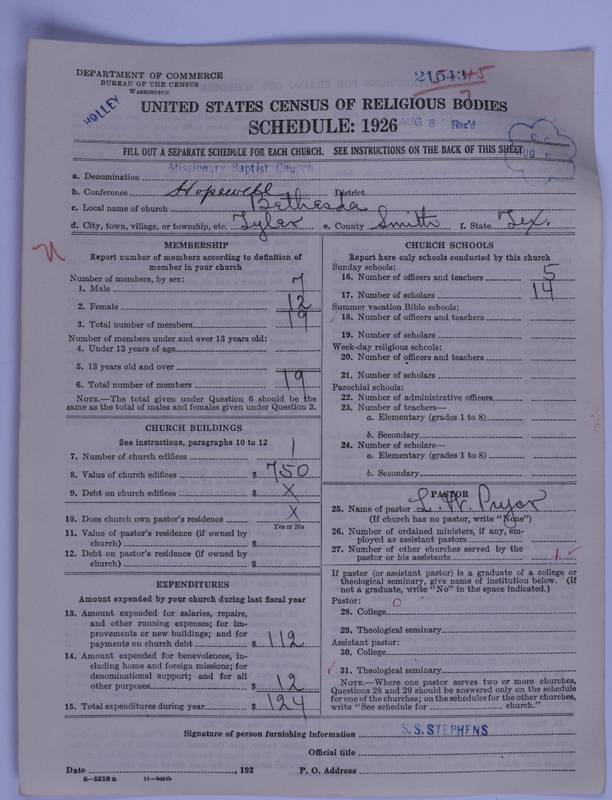 DEPARTMENT OF COMMERCE
BUREAU OF THE CENSUS
WASHINGTON
HOLLEY
UNITED STATES CENSUS OF RELIGIOUS BODIES
SCHEDULE: 1926
AUG 8 Rec'd
FILL OUT A SEPARATE SCHEDULE FOR EACH CHURCH. SEE INSTRUCTIONS ON THE BACK OF THIS SHEET
a. Denomination Missionary Baptist Church
b. Conference Hopewell District
c. Local name of church Bethesda
d. City, town, village, or township, etc. Tyler e. County Smith f. State Tex.
MEMBERSHIP
Report number of members according to definition of
member in your church
Number of members, by sex:
1. Male 7
2. Female 12
3. Total number of members 19
Number of members under and over 13 years old:
4. Under 13 years of age
5. 13 years old and over
6. Total number of members 19
NOTE.—The total given under Question 6 should be the
same as the total of males and females given under Question 3.
CHURCH BUILDINGS
See instructions, paragraphs 10 to 12
7. Number of church edifices 1
8. Value of church edifices $ 750
9. Debt on church edifices $ X
10. Does church own pastor's residence X
Yes or No
11. Value of pastor's residence (if owned by
church) $
12. Debt on pastor's residence (if owned by
church) $
EXPENDITURES
Amount expended by your church during last fiscal year
13. Amount expended for salaries, repairs,
and other running expenses; for im-
provements or new buildings; and for
payments on church debt $ 112
14. Amount expended for benevolences, in-
cluding home and foreign missions; for
denominational support; and for all
other purposes $ 12
15. Total expenditures during year $ 124
CHURCH SCHOOLS
Report here only schools conducted by this church
Sunday schools:
16. Number of officers and teachers 5
17. Number of scholars 14
Summer vacation Bible schools:
18. Number of officers and teachers
19. Number of scholars
Week-day religious schools:
20. Number of officers and teachers
21. Number of scholars
Parochial schools:
22. Number of administrative officers
23. Number of teachers—
a. Elementary (grades 1 to 8)
b. Secondary
24. Number of scholars—
a. Elementary (grades 1 to 8)
b. Secondary
PASTOR
25. Name of pastor L. W. Pryor
(If church has no pastor, write "None")
26. Number of ordained ministers, if any, em-
ployed as assistant pastors
27. Number of other churches served by the
pastor or his assistants 1
If pastor (or assistant pastor) is a graduate of a college or
theological seminary, give name of institution below. (If
not a graduate, write "No" in the space indicated.)
Pastor: 0
28. College
29. Theological seminary
Assistant pastor:
30. College
31. Theological seminary
NOTE.—Where one pastor serves two or more churches,
Questions 28 and 29 should be answered only on the schedule
for one of the churches; on the schedules for the other churches,
write "See schedule for church."
Signature of person furnishing information S. S. STEPHENS
Official title
Date , 192 P. O. Address
8—5518a 11—4024b